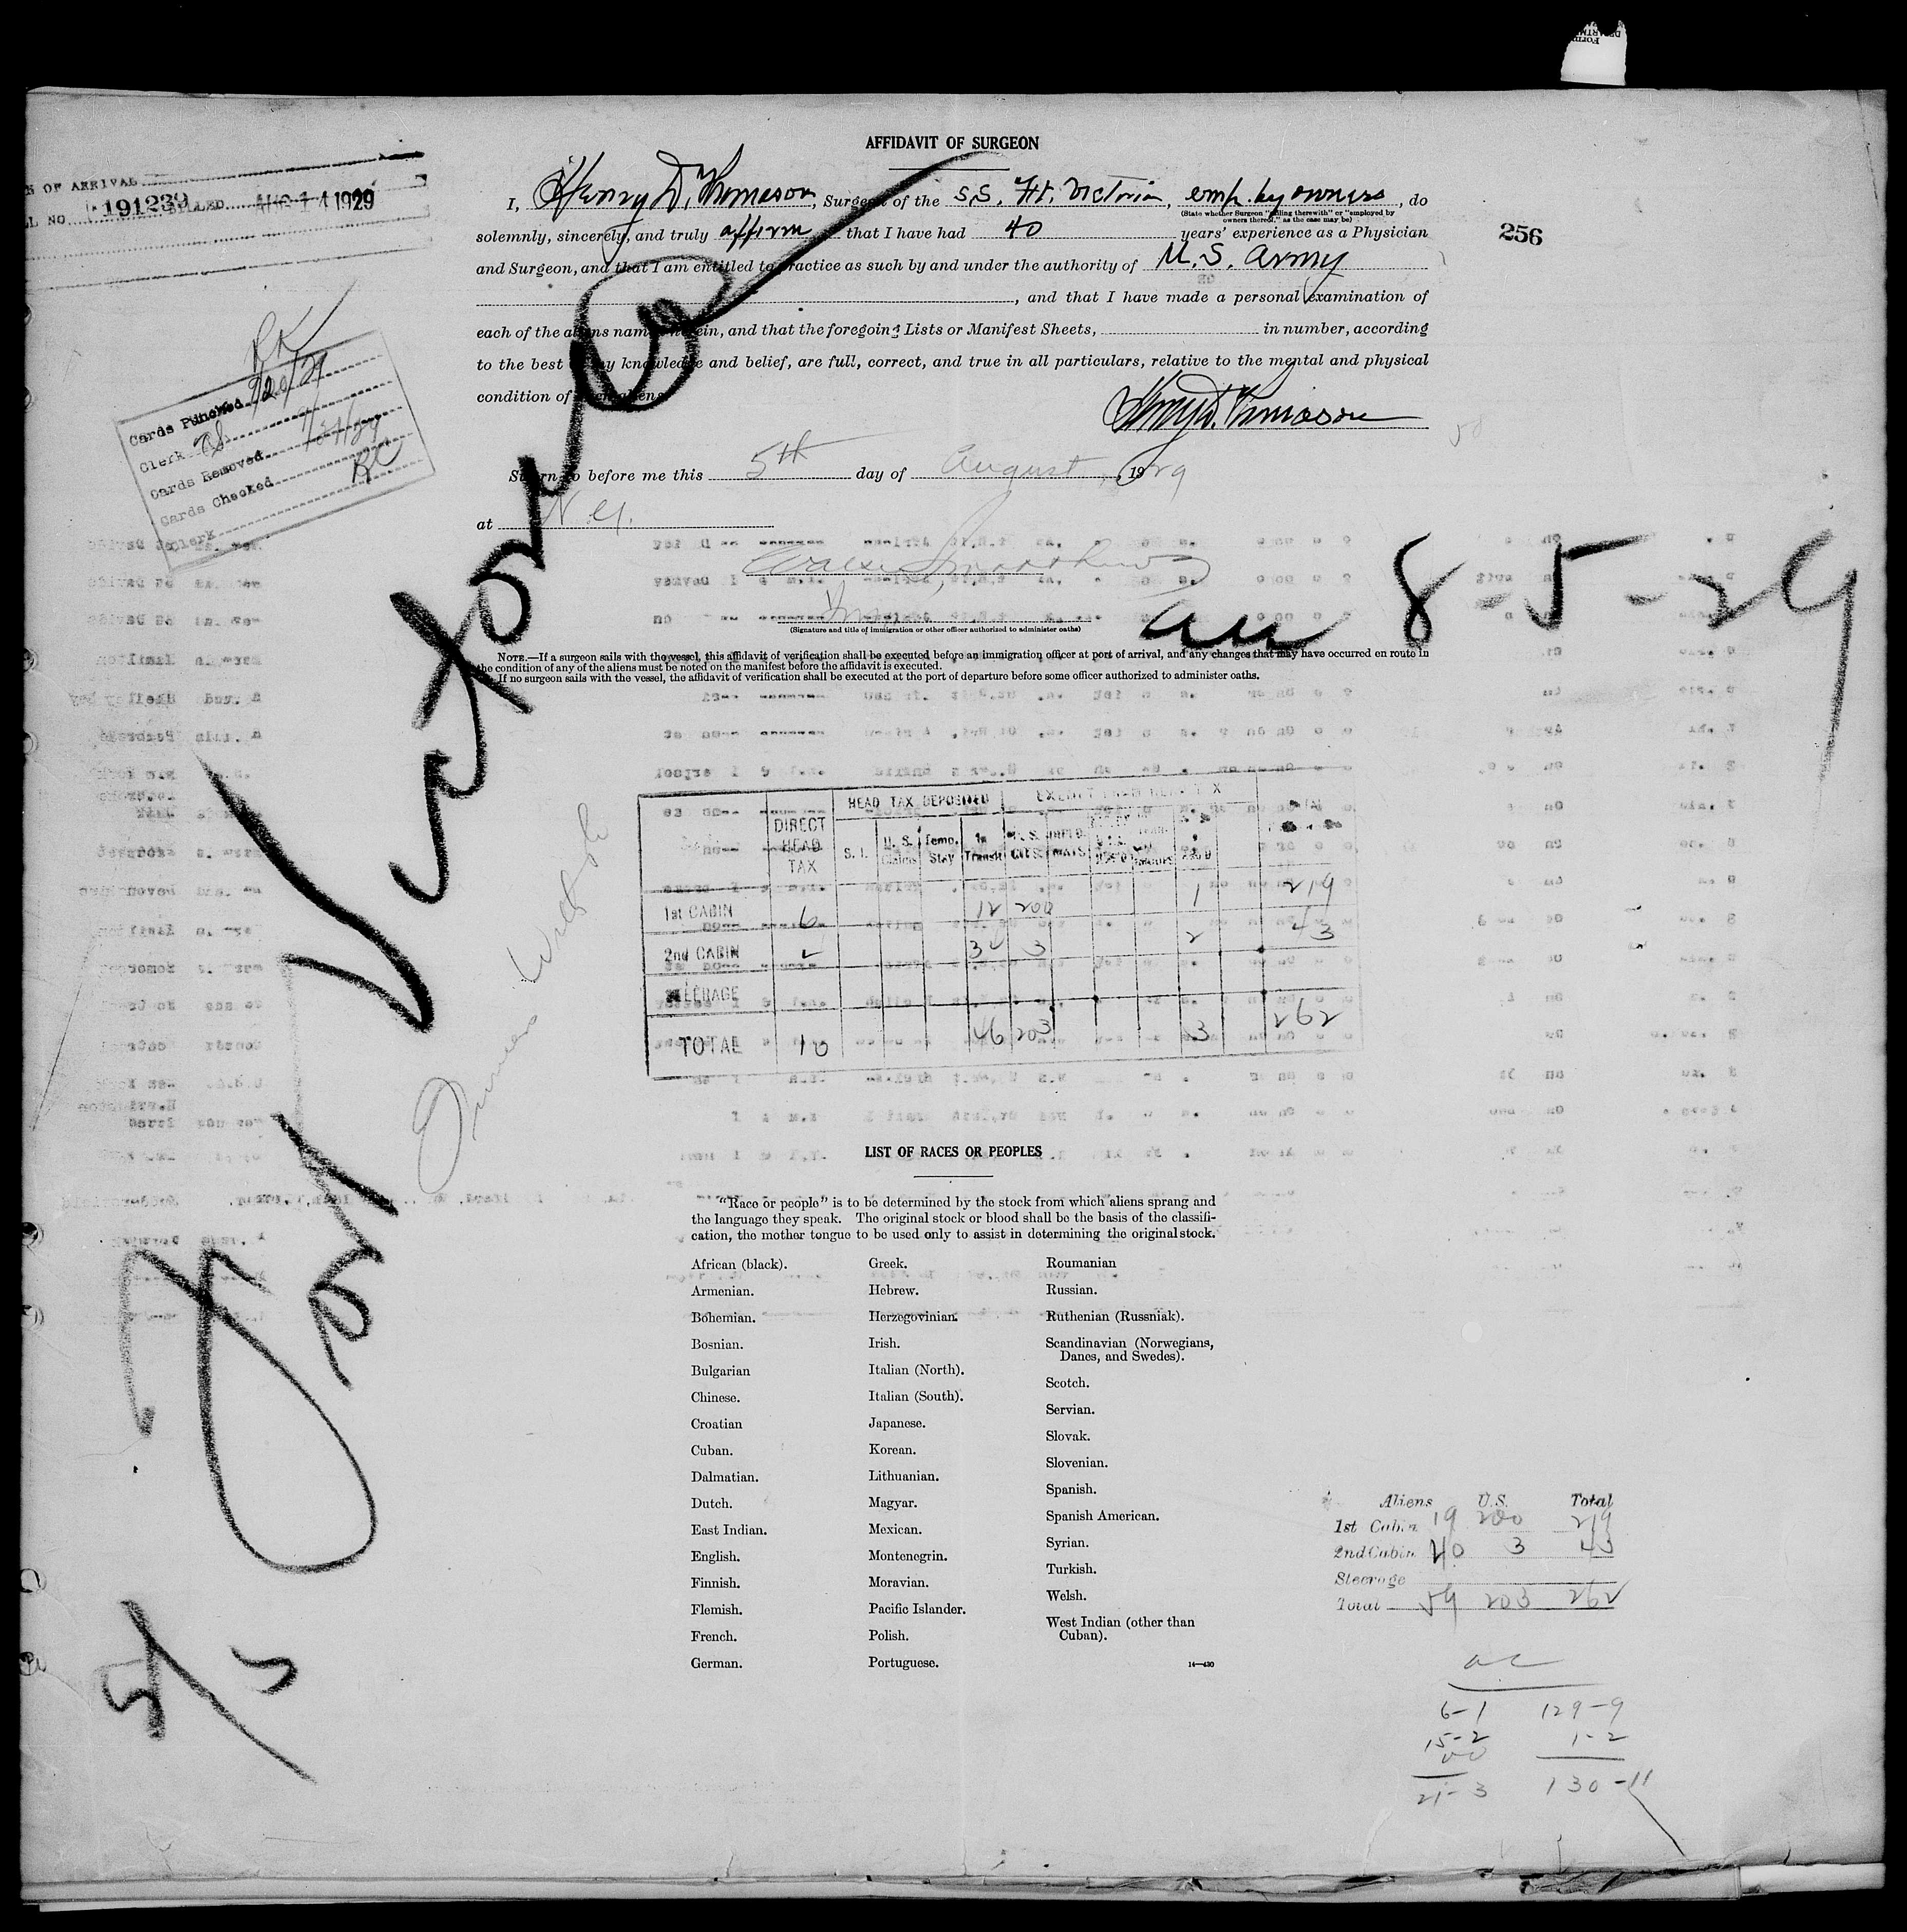 AFFIDAVIT OF SURGEON
OF ARRIVAL
L NO 191239 BILLED AUG 14 1929
I, Henry D. Thomason, Surgeon of the S.S. Ft. Victoria, emp. by owners, do
(State whether Surgeon "sailing therewith" or "employed by
owners thereof," as the case may be)
solemnly, sincerely, and truly affirm that I have had 40 years' experience as a Physician
256
and Surgeon, and that I am entitled to practice as such by and under the authority of U.S. Army
, and that I have made a personal examination of
each of the aliens named herein, and that the foregoing Lists or Manifest Sheets, in number, according
to the best of my knowledge and belief, are full, correct, and true in all particulars, relative to the mental and physical
condition of such aliens.
Henry D. Thomason
RK
Cards Punched
Clerk
Cards Removed
Cards Checked RC
Clerk
Sworn to before me this 5th day of August, 1929
at N.Y.
(Signature and title of immigration or other officer authorized to administer oaths)
8-5-29
NOTE.—If a surgeon sails with the vessel, this affidavit of verification shall be executed before an immigration officer at port of arrival, and any changes that may have occurred en route in
the condition of any of the aliens must be noted on the manifest before the affidavit is executed.
If no surgeon sails with the vessel, the affidavit of verification shall be executed at the port of departure before some officer authorized to administer oaths.
Fort Victoria
HEAD TAX DEPOSITED EXEMPT FROM HEAD TAX
DIRECT HEAD TAX S. I. U. S. Claims Temp. Stay In Transit U. S. CITS.
1st CABIN 6 12 200 1 219
2nd CABIN 4 34 3 2 43
STEERAGE
TOTAL 10 46 203 3 262
LIST OF RACES OR PEOPLES
"Race or people" is to be determined by the stock from which aliens sprang and
the language they speak. The original stock or blood shall be the basis of the classifi-
cation, the mother tongue to be used only to assist in determining the original stock.
African (black).
Armenian.
Bohemian.
Bosnian.
Bulgarian
Chinese.
Croatian
Cuban.
Dalmatian.
Dutch.
East Indian.
English.
Finnish.
Flemish.
French.
German.
Greek.
Hebrew.
Herzegovinian.
Irish.
Italian (North).
Italian (South).
Japanese.
Korean.
Lithuanian.
Magyar.
Mexican.
Montenegrin.
Moravian.
Pacific Islander.
Polish.
Portuguese.
Roumanian
Russian.
Ruthenian (Russniak).
Scandinavian (Norwegians,
Danes, and Swedes).
Scotch.
Servian.
Slovak.
Slovenian.
Spanish.
Spanish American.
Syrian.
Turkish.
Welsh.
West Indian (other than
Cuban).
14—430
Aliens U.S. Total
1st Cabin 19 200 219
2nd Cabin 40 3 43
Steerage
Total 59 203 262
6-1 129-9
15-2 1-2
21-3 130-11